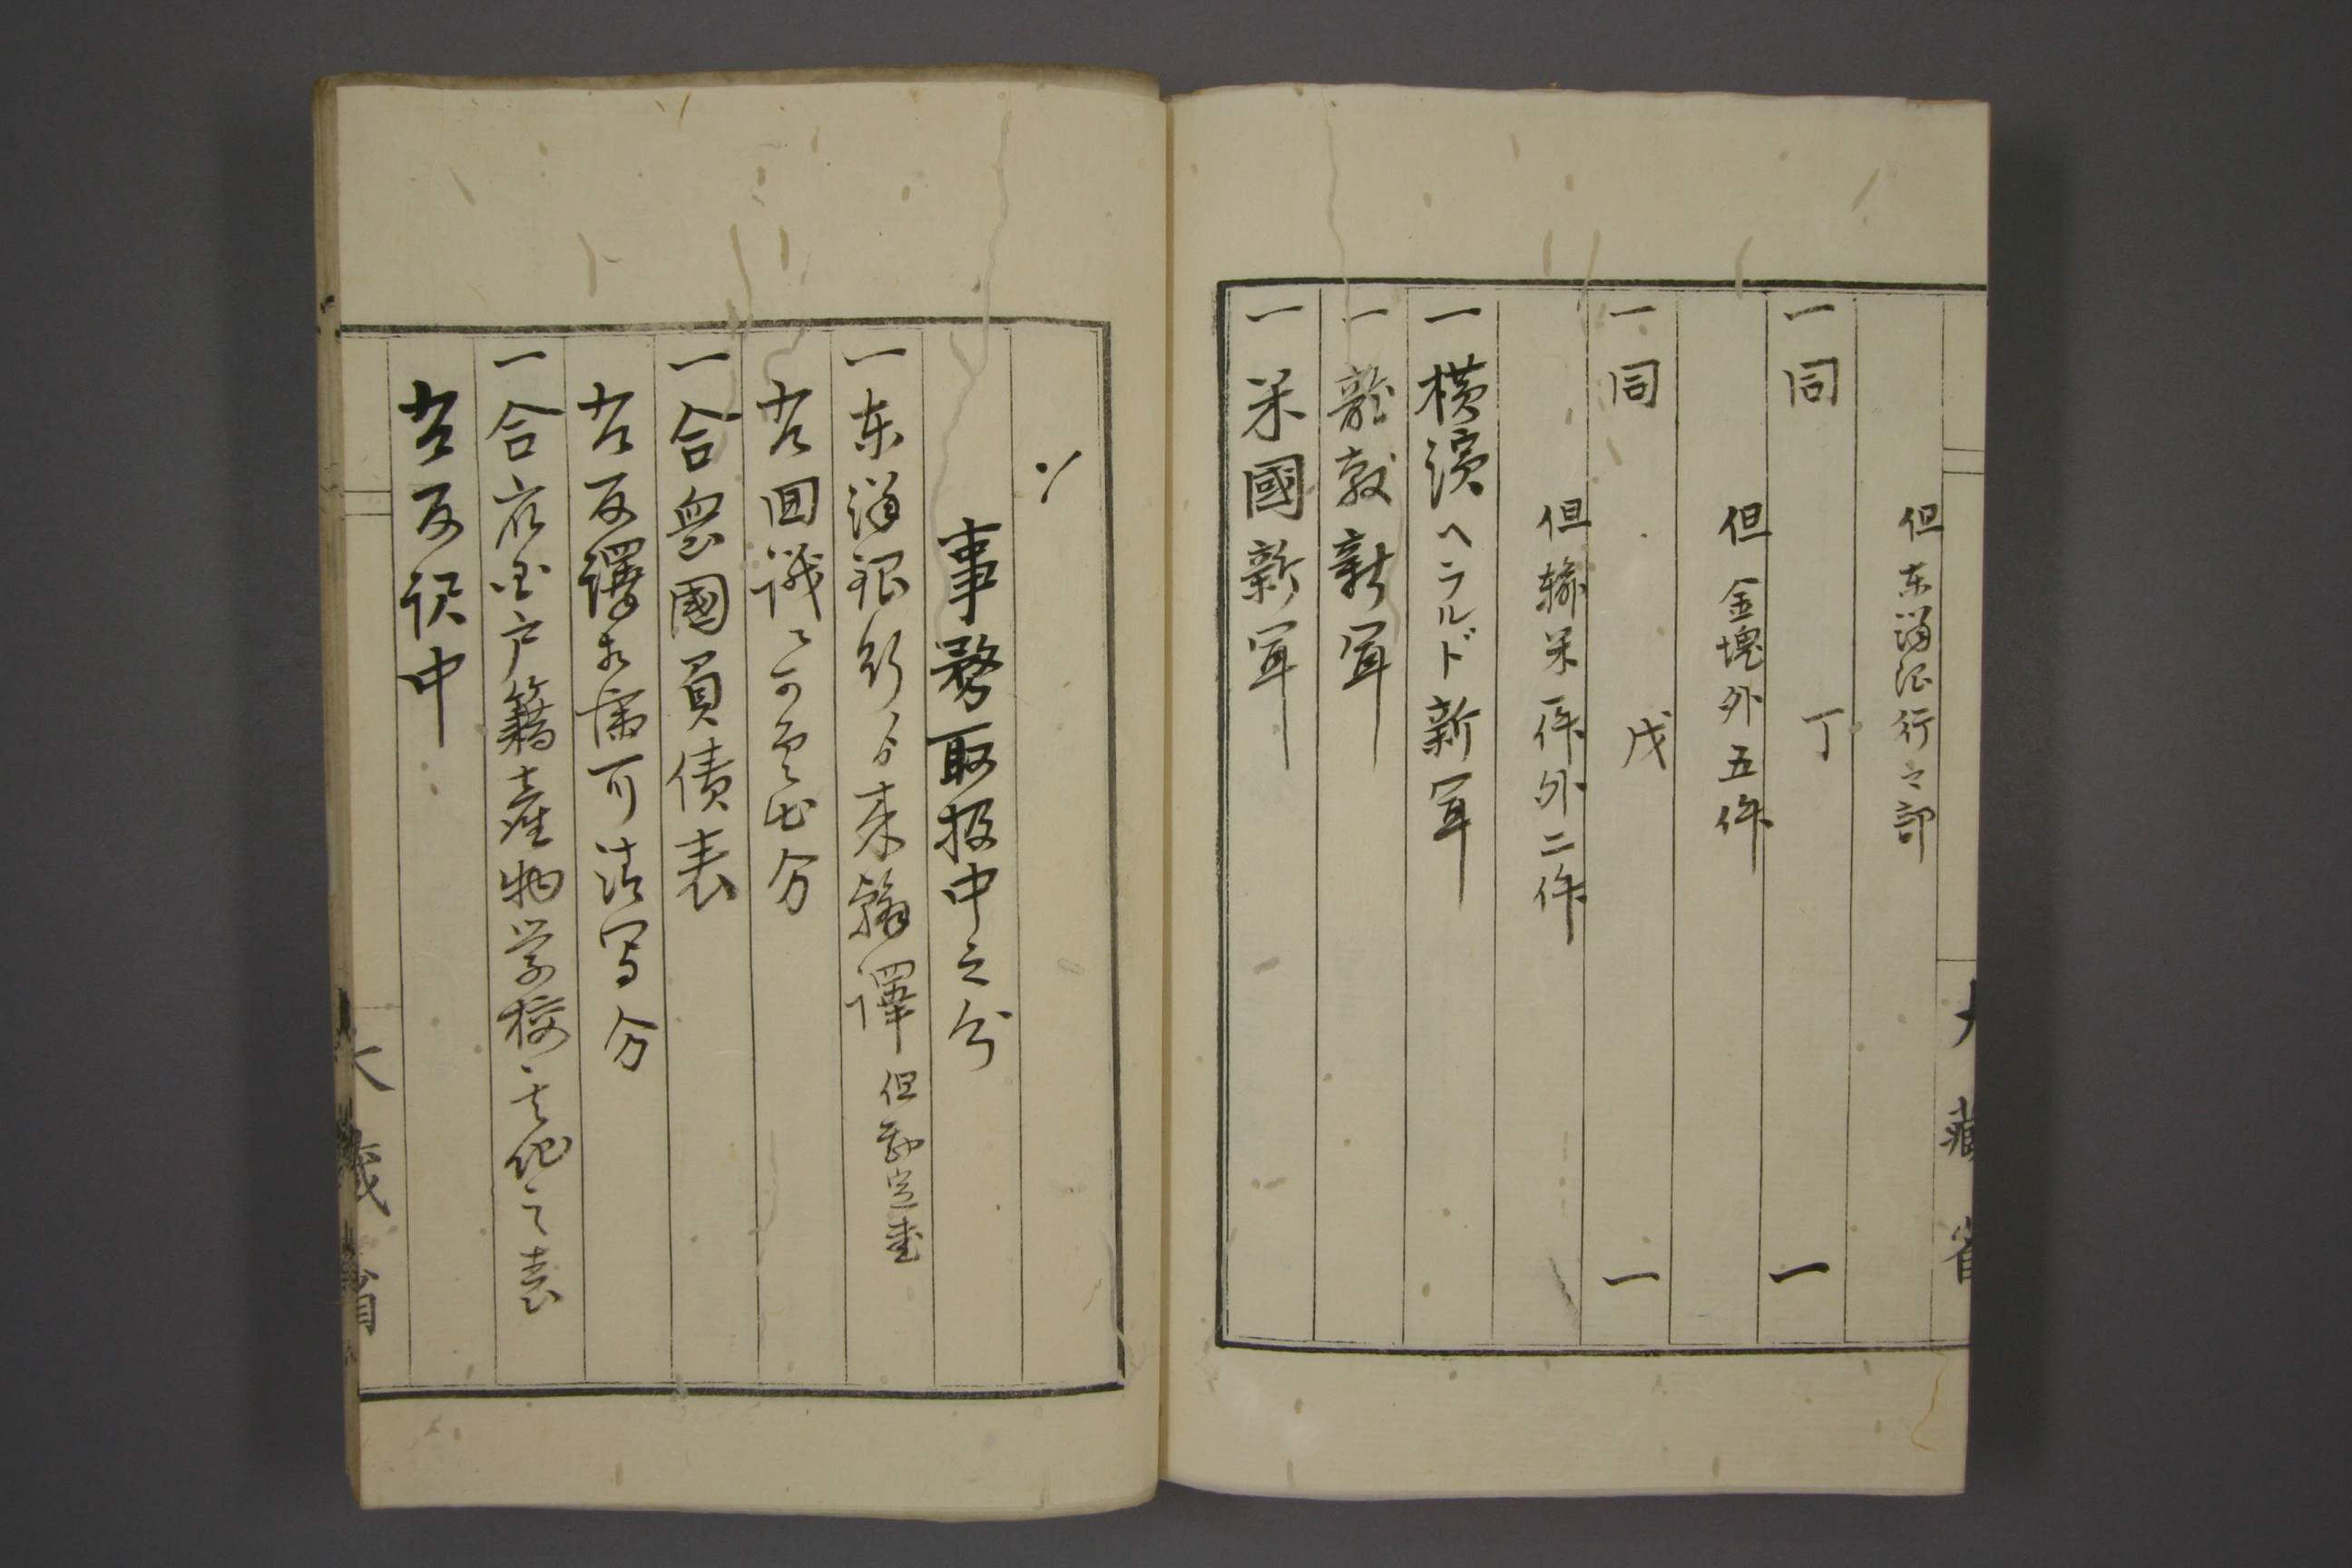 但東洋銀行之部
一同 丁 一
但金塊外五件
一同 戊 一
但輸米一件外二件
一横濱ヘラルド新聞
一龍動新聞
一米國新聞
大藏省
〆
事務取扱中之分
一東洋銀行ゟ来翰譯 但勘定書
右回議ニ可差出分
一合衆國負債表
右反譯相済可清写分
一合衆国戸籍産物学校其他之表
右反訳中
大藏省